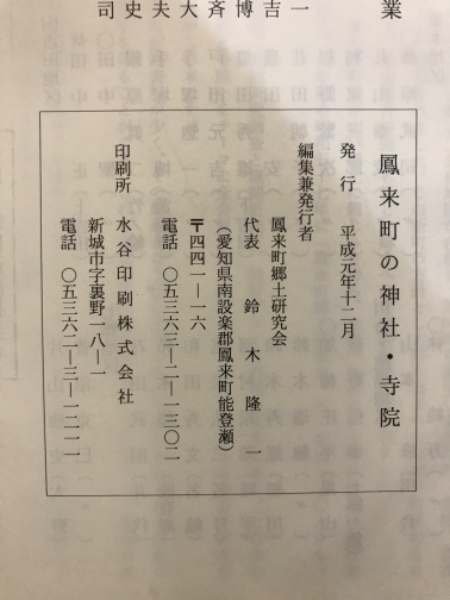 業
一
吉
博
斉
大
夫
史
司
鳳来町の神社・寺院
発行 平成元年十二月
編集兼発行者
鳳来町郷土研究会
代表 鈴木隆一
(愛知県南設楽郡鳳来町能登瀬)
〒四四一―一六
電話 〇五三六三―二―一三〇二
印刷所 水谷印刷株式会社
新城市字裏野一八―一
電話 〇五三六二―三―一二一一